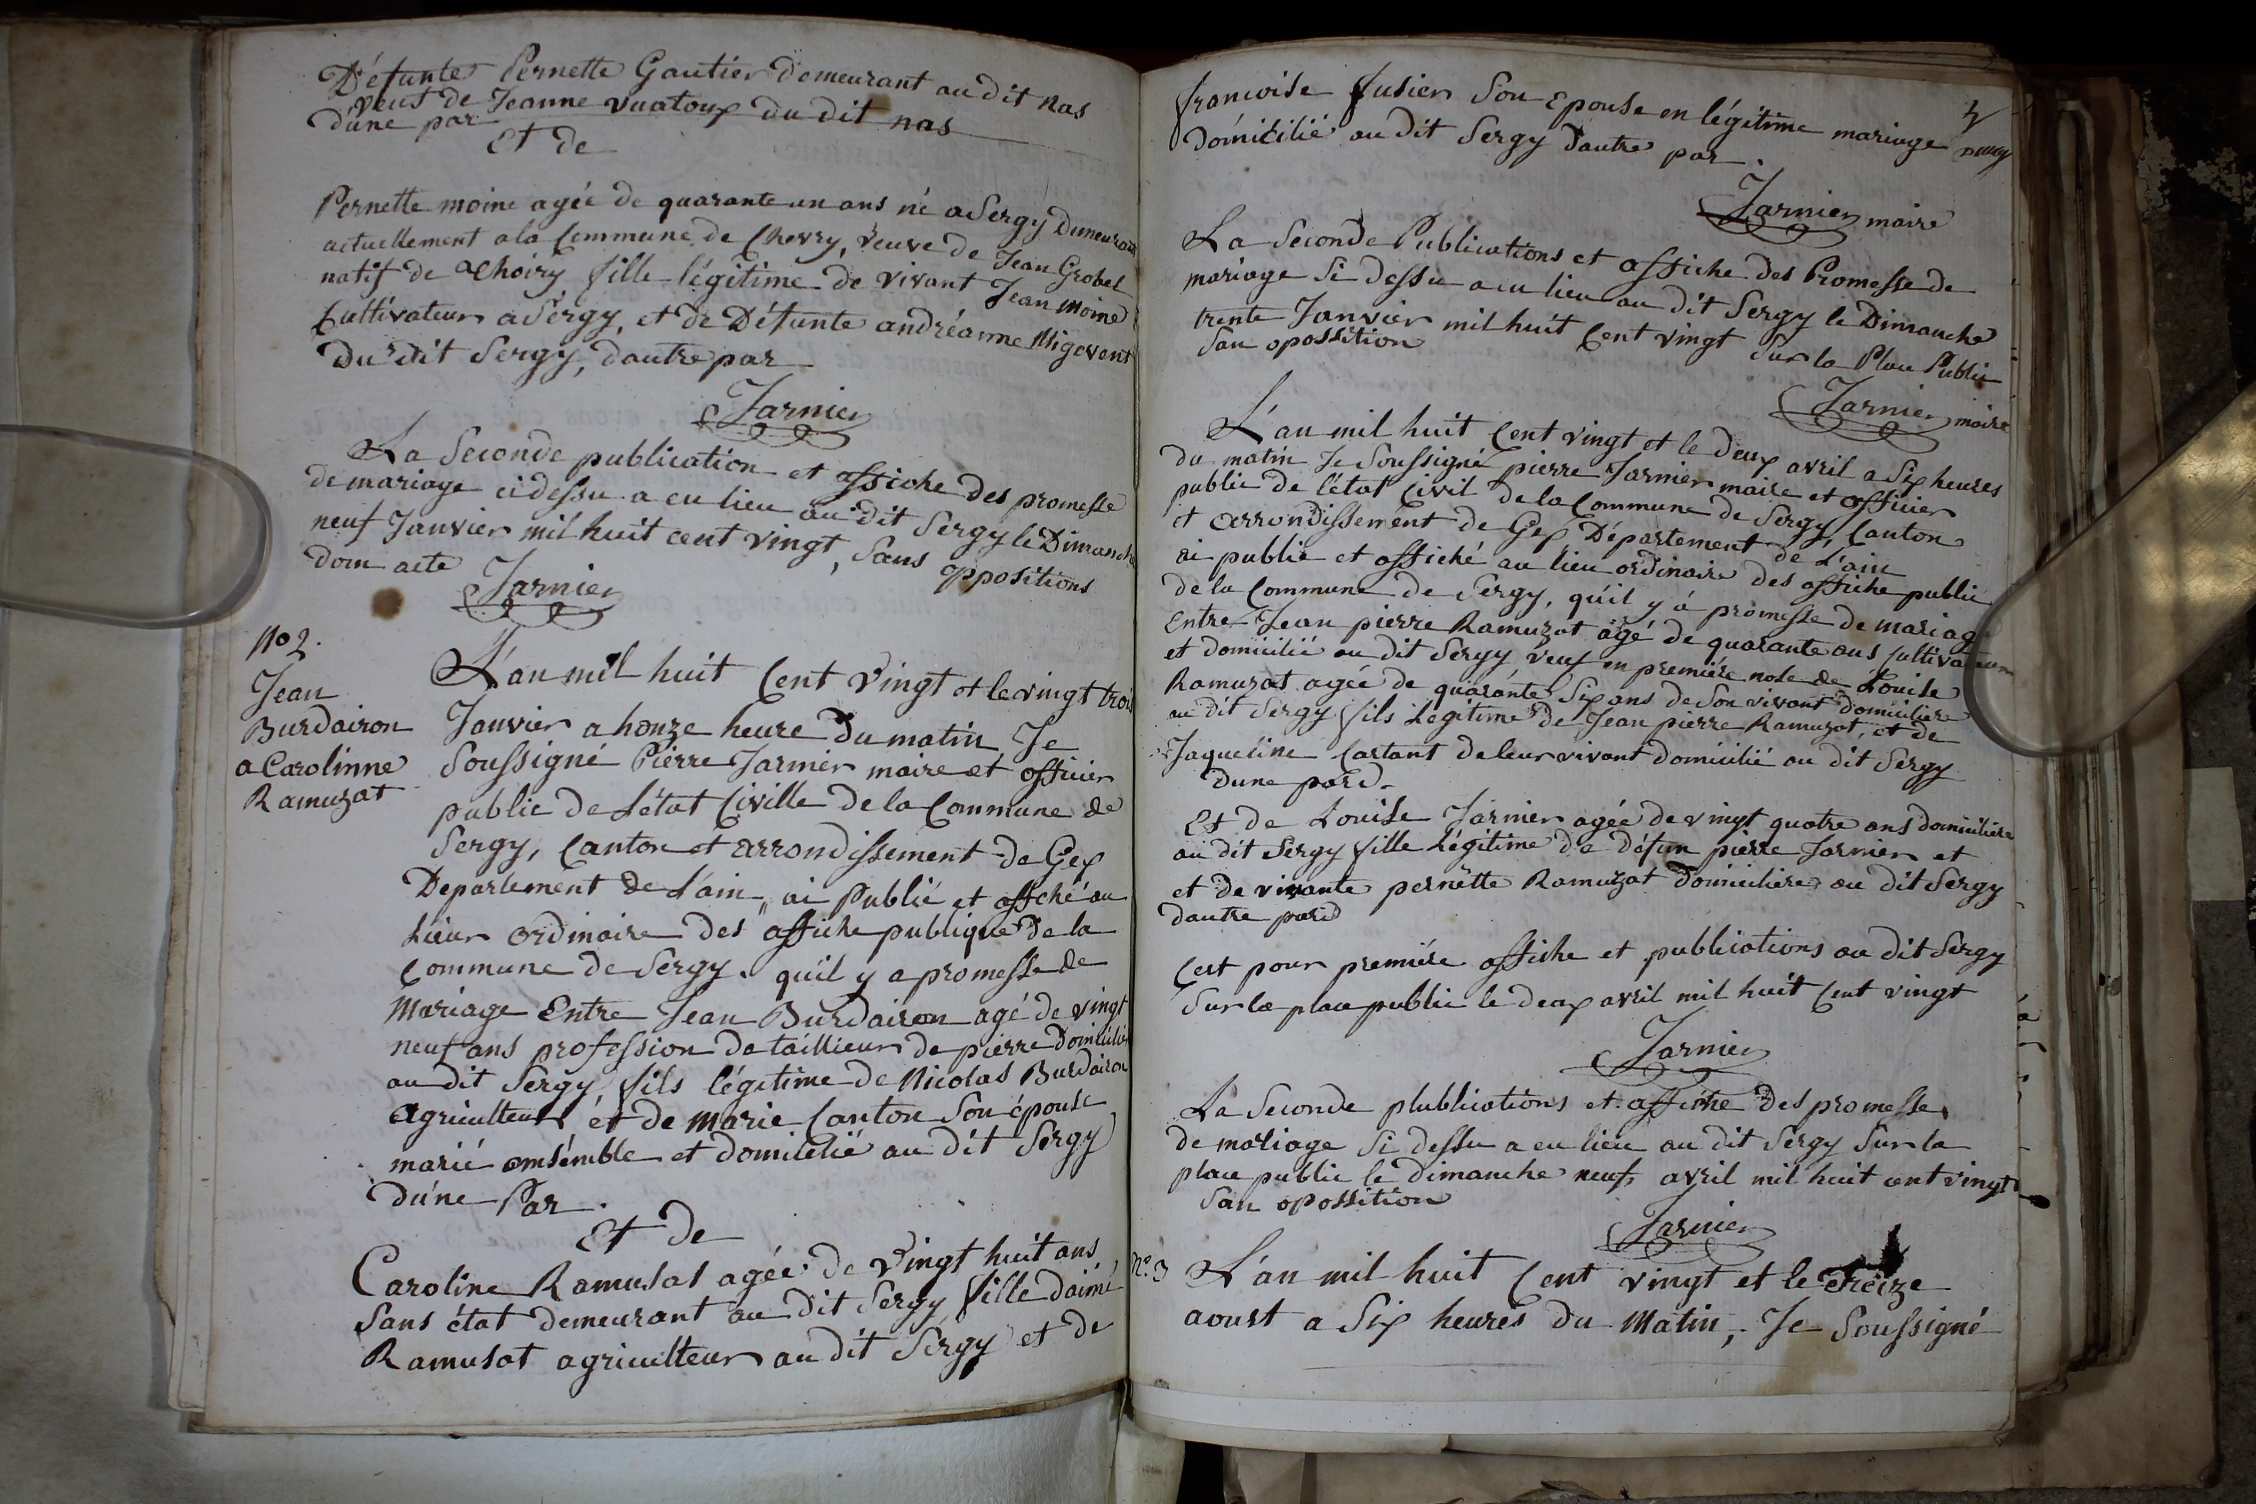 Défunte Pernette Gautier demeurant au dit nas
veuf de Jeanne vuatoux du dit nas
d'une par
Et de
Pernette moine agée de quarante un ans né a Sergy Demeurant
actuellement a la Commune de Chevry, veuve de Jean Grobel
natif de Choiry fille légitime de vivant Jean moine
Cultivateur a Sergy, et de Défunte andréanne Migevent
Du dit Sergy, dautre par
Jarnier
La Seconde publication et affiche des promesse
de mariage ci dessu a eu lieu au dit Sergy le Dimanche
neuf Janvier mil huit cent vingt, Sans oppositions
dom acte Jarnier
No 2.
Jean
Burdairon
a Carolinne
Ramuzat
L'an mil huit Cent vingt et le vingt trois
Janvier a honze heure Du matin Je
Soussigné Pierre Jarnier maire et officier
public de L'état Civille de la Commune de
Sergy, Canton et arrondissement de Gex
Departement de L'ain ai Publié et affiché au
Lieux ordinaire des affiche publique De la
Commune de Sergy. qu'il y a promesse de
Mariage Entre Jean Burdairon agé de vingt
neuf ans profession de taillieur de pierre Domicilié
au dit Sergy fils légitime de Nicolas Burdairon
Agriculteur et de Marie Canton Son épouse
marié emsémble et domicilié au dit Sergy
Dune Par.
Et de
Caroline Ramusat agée de vingt huit ans
Sans état demeurant au dit Sergy fille d'aimé
Ramusat agriculteur au dit Sergy et de
francoise fusier Son Epouse en légitime mariage
Domicilié au dit Sergy dautre par.
Jarnier maire
La Seconde Publications et affiche des Promesse de
mariage Si dessu a eu lieu au dit Sergy le Dimanche
trente Janvier mil huit Cent vingt Sur la Place Public
San oposition
Jarnier maire
L'an mil huit Cent vingt et le deux avril a Six heures
du matin Je Soussigné pierre Jarnier maire et officier
public de l'état Civil de la Commune de Sergy, Canton
et arrondissement de Gex Département de L'ain
ai publié et affiché au lieu ordinaire des affiche public
de la Commune de Sergy, quil y a promesse de mariage
Entre Jean pierre Ramuzat agé de quarante ans Cultivateur
et domicilié au dit Sergy veuf en première nose de Louise
Ramuzat agée de quarante Six ans de Son vivant domiciliere
au dit Sergy fils Legitime de Jean pierre Ramuzat, et de
Jaqueline Cartant de leur vivant domicilié au dit Sergy
Dune pard.
Et de Louise Jarnier agée de vingt quatre ans domiciliere
au dit Sergy fille Légitime de défun pierre Jarnier et
et de vivante pernette Ramuzat domiciliere au dit Sergy
dautre pard
Cest pour premiére affiche et publications au dit Sergy
Sur la place public le deux avril mil huit Cent vingt
Jarnier
La Seconde plublications et affiche des promesse
de mariage Si dessu a eu lieu au dit Sergy Sur la
place public le dimanche neuf avril mil huit cent vingt
San oposition
Jarnier
No. 3 L'an mil huit Cent vingt et le treize
aoust a Six heures Du Matin, Je Soussigné